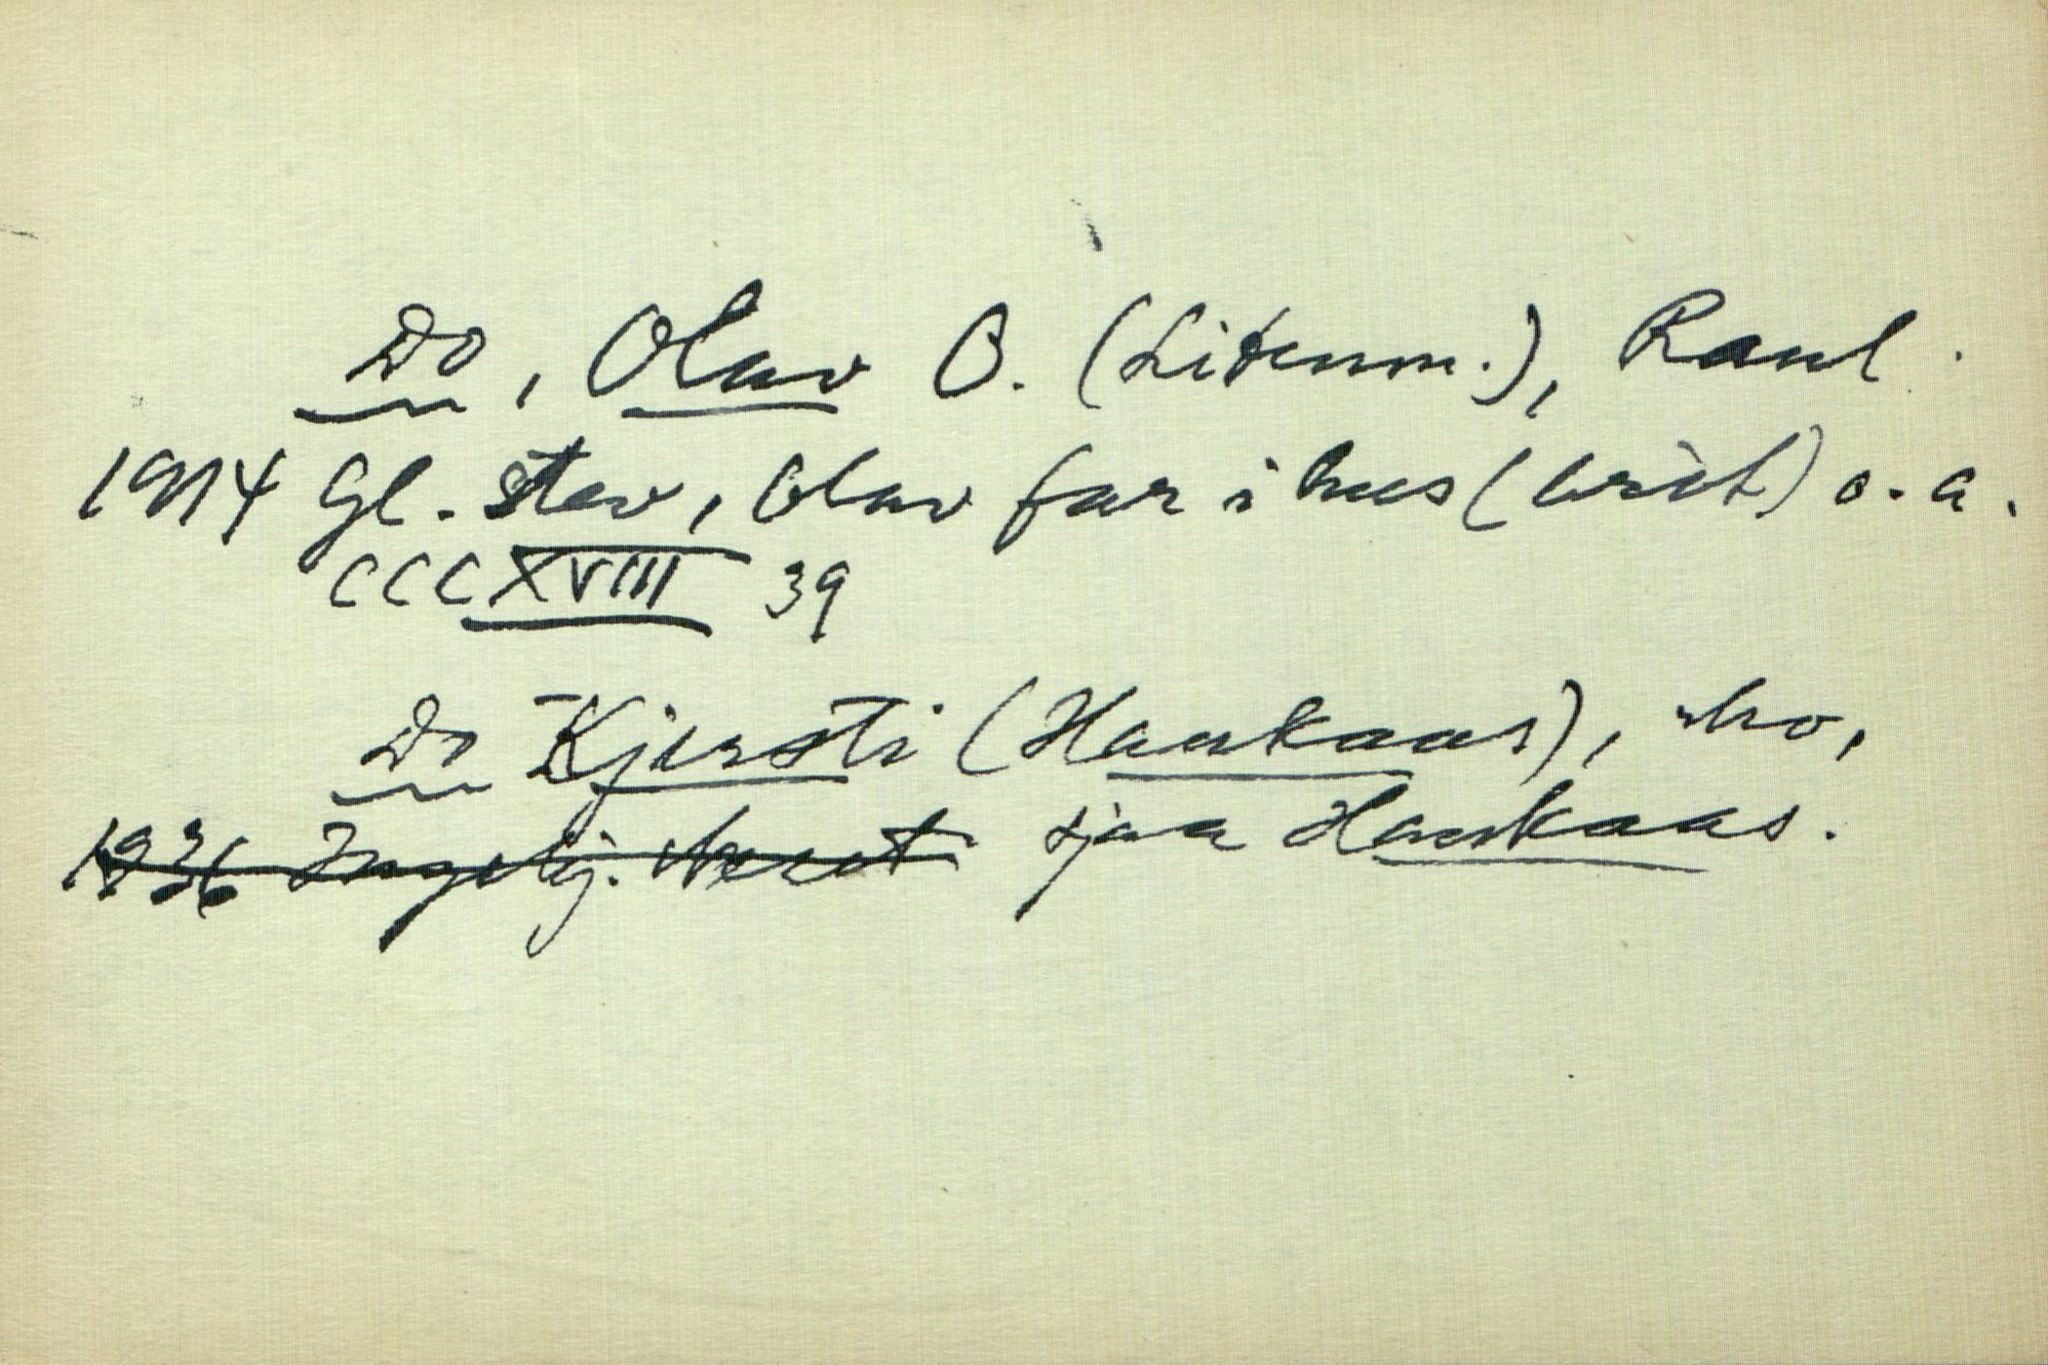 Do, Olav O. (Litenm.), Raul.
1914 Gl. stev, Olav far i hus (brist) o. a.
CCCXVIII 39
Do Kjersti (Haukaas), ibo,
1936 Ingebj. sjaa Haukaas.